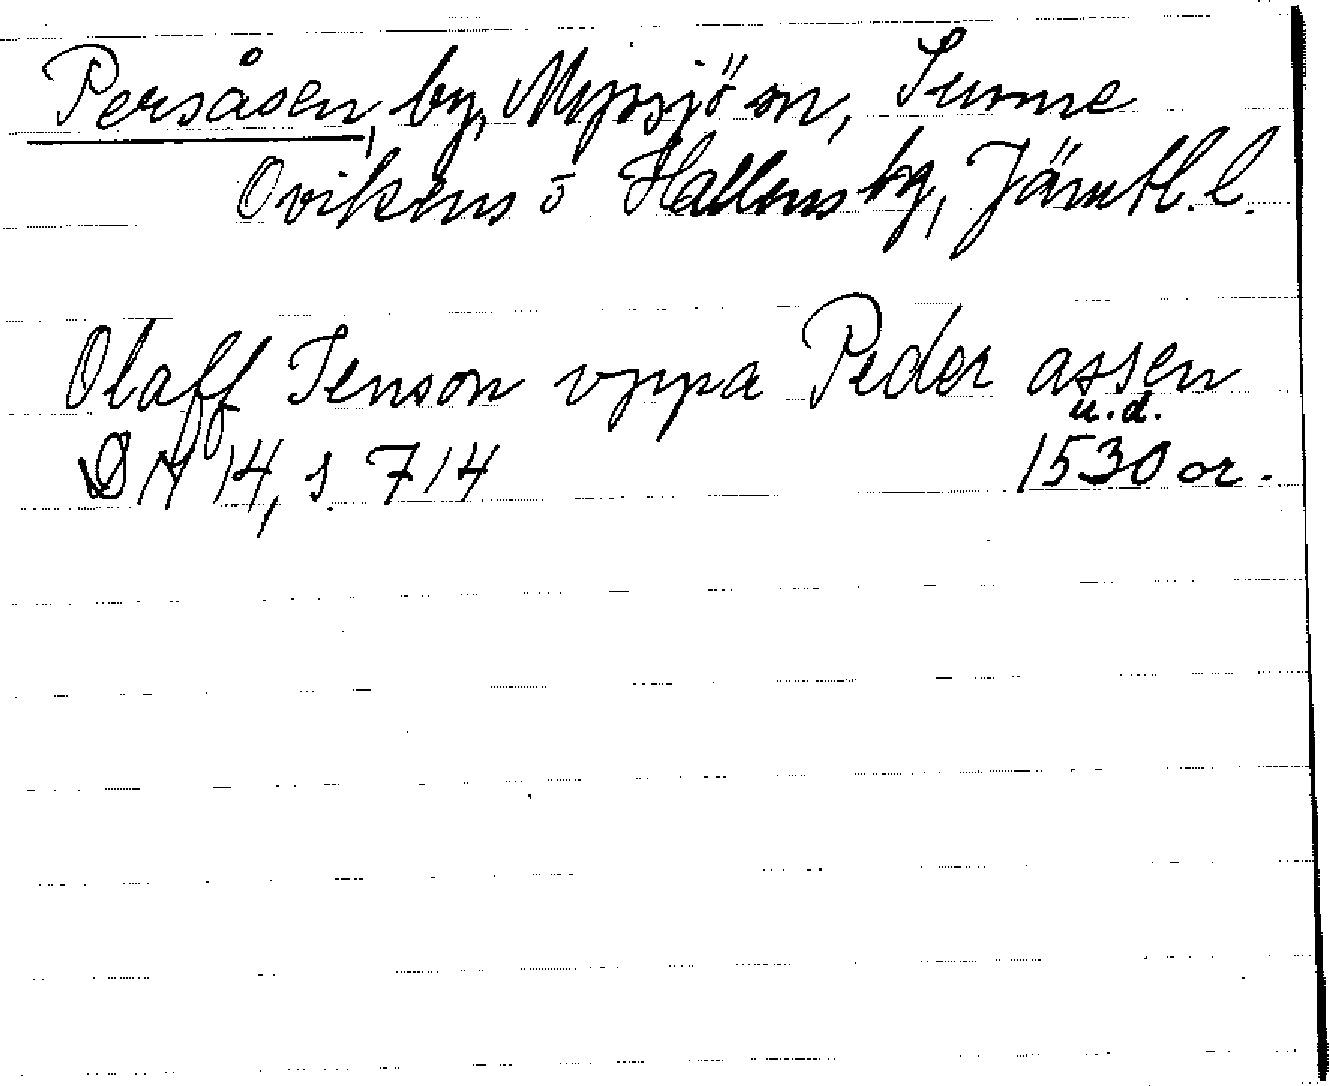 Persåsen, by, Myssjö sn, Sunne
Ovikens o Hallens tg, Jämtl. l.
Olaff Jenson vppa Peder assen
u.d.
DN 14, s. 714 1530 or.